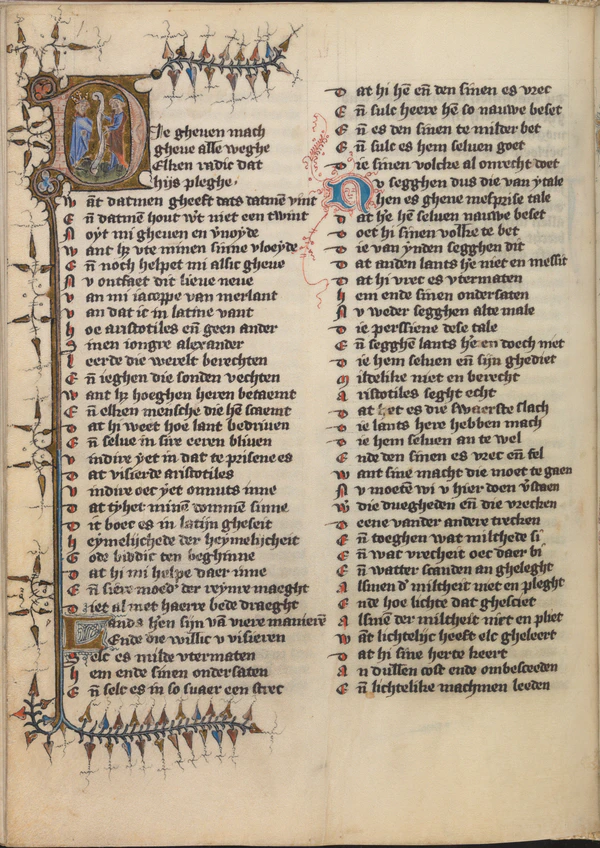 Die gheuen mach
gheue alle weghe
Elken radic dat
hijs pleghe
want datmen gheeft dats datmē vint
En̄ datmē hout wt niet een twint
Noyt mi gheuen en v̄noyde
want hz vte minen sinne vloeyde
En̄ noch helpet mi alsic gheue
Nu ontfaet dit lieue neue
van mi iacoppe van merlant
van dat ic in latine vant
hoe aristotiles en̄ geen ander
Sinen iongre alexander
leerde die werelt berechten
En̄ ieghen die sonden vechten
want hz hoeghen heren betaemt
En̄ elken mensche die hē scaemt
Dat hi weet hoe lant bedriuen
En̄ selue in sire eeren bliuen
vindire yet in dat te prisene es
Dat visierde aristotiles
vindire oec yct onnuts inne
Dat tyhet minē dommē sinne
Dit boec es in latijn gheseit
heymelijchede der heymelijcheit
Gode biddic ten beghinne
Dat hi mi helpe daer inne
En̄ siere moed' der reynre maeght
Diet al met haerre bede draeght
Lands hen sijn vā viere manierē
Ende die willic v visieren
Selc es milde vtermaten
hem ende sinen ondersaten
En̄ selc es in so suaer een stret
Dat hi hē en̄ den sinen es vrec
En̄ sulc heere hē so nauwe beset
En̄ es den sinen te milder bet
En̄ sulc es hem seluen goet
Die sinen volcke al onrecht doet
Nu segghen dus die van ytale
hen es ghene mesprise tale
Dat he hē seluen nauwe beset
Doet hi sinen volke te bet
Die van ynden segghen dit
Dat anden lants he niet en messit
Dat hi vret es vtermaten
hem ende sinen ondersaten
Nu weder segghen alte male
Die perssiene dese tale
En̄ segghē lants he en doech niet
Die hem seluen en̄ sijn ghediet
Mildelike niet en berecht
Aristotiles seght echt
Dat het es die swaerste slach
Die lants here hebben mach
Die hem seluen an te wel
Ende den sinen es vrec en̄ fel
want sine macht die moet te gaen
Nu moetē wi v hier doen v̄staen
wt die duegheden en̄ die vrecken
Deene vander andere trecken
En̄ toeghen wat milthede si
En̄ wat vrecheit oec daer bi
En̄ watter scanden an gheleght
Alsmen d' miltheit niet en pleght
Ende hoe lichte dat ghesciet
Alsmē der miltheit niet en pliet
wāt lichtelijc heeft elc gheleert
Dat hi sine herte keert
An dullen cost ende onbesceeden
En̄ lichtelike machmen leeden